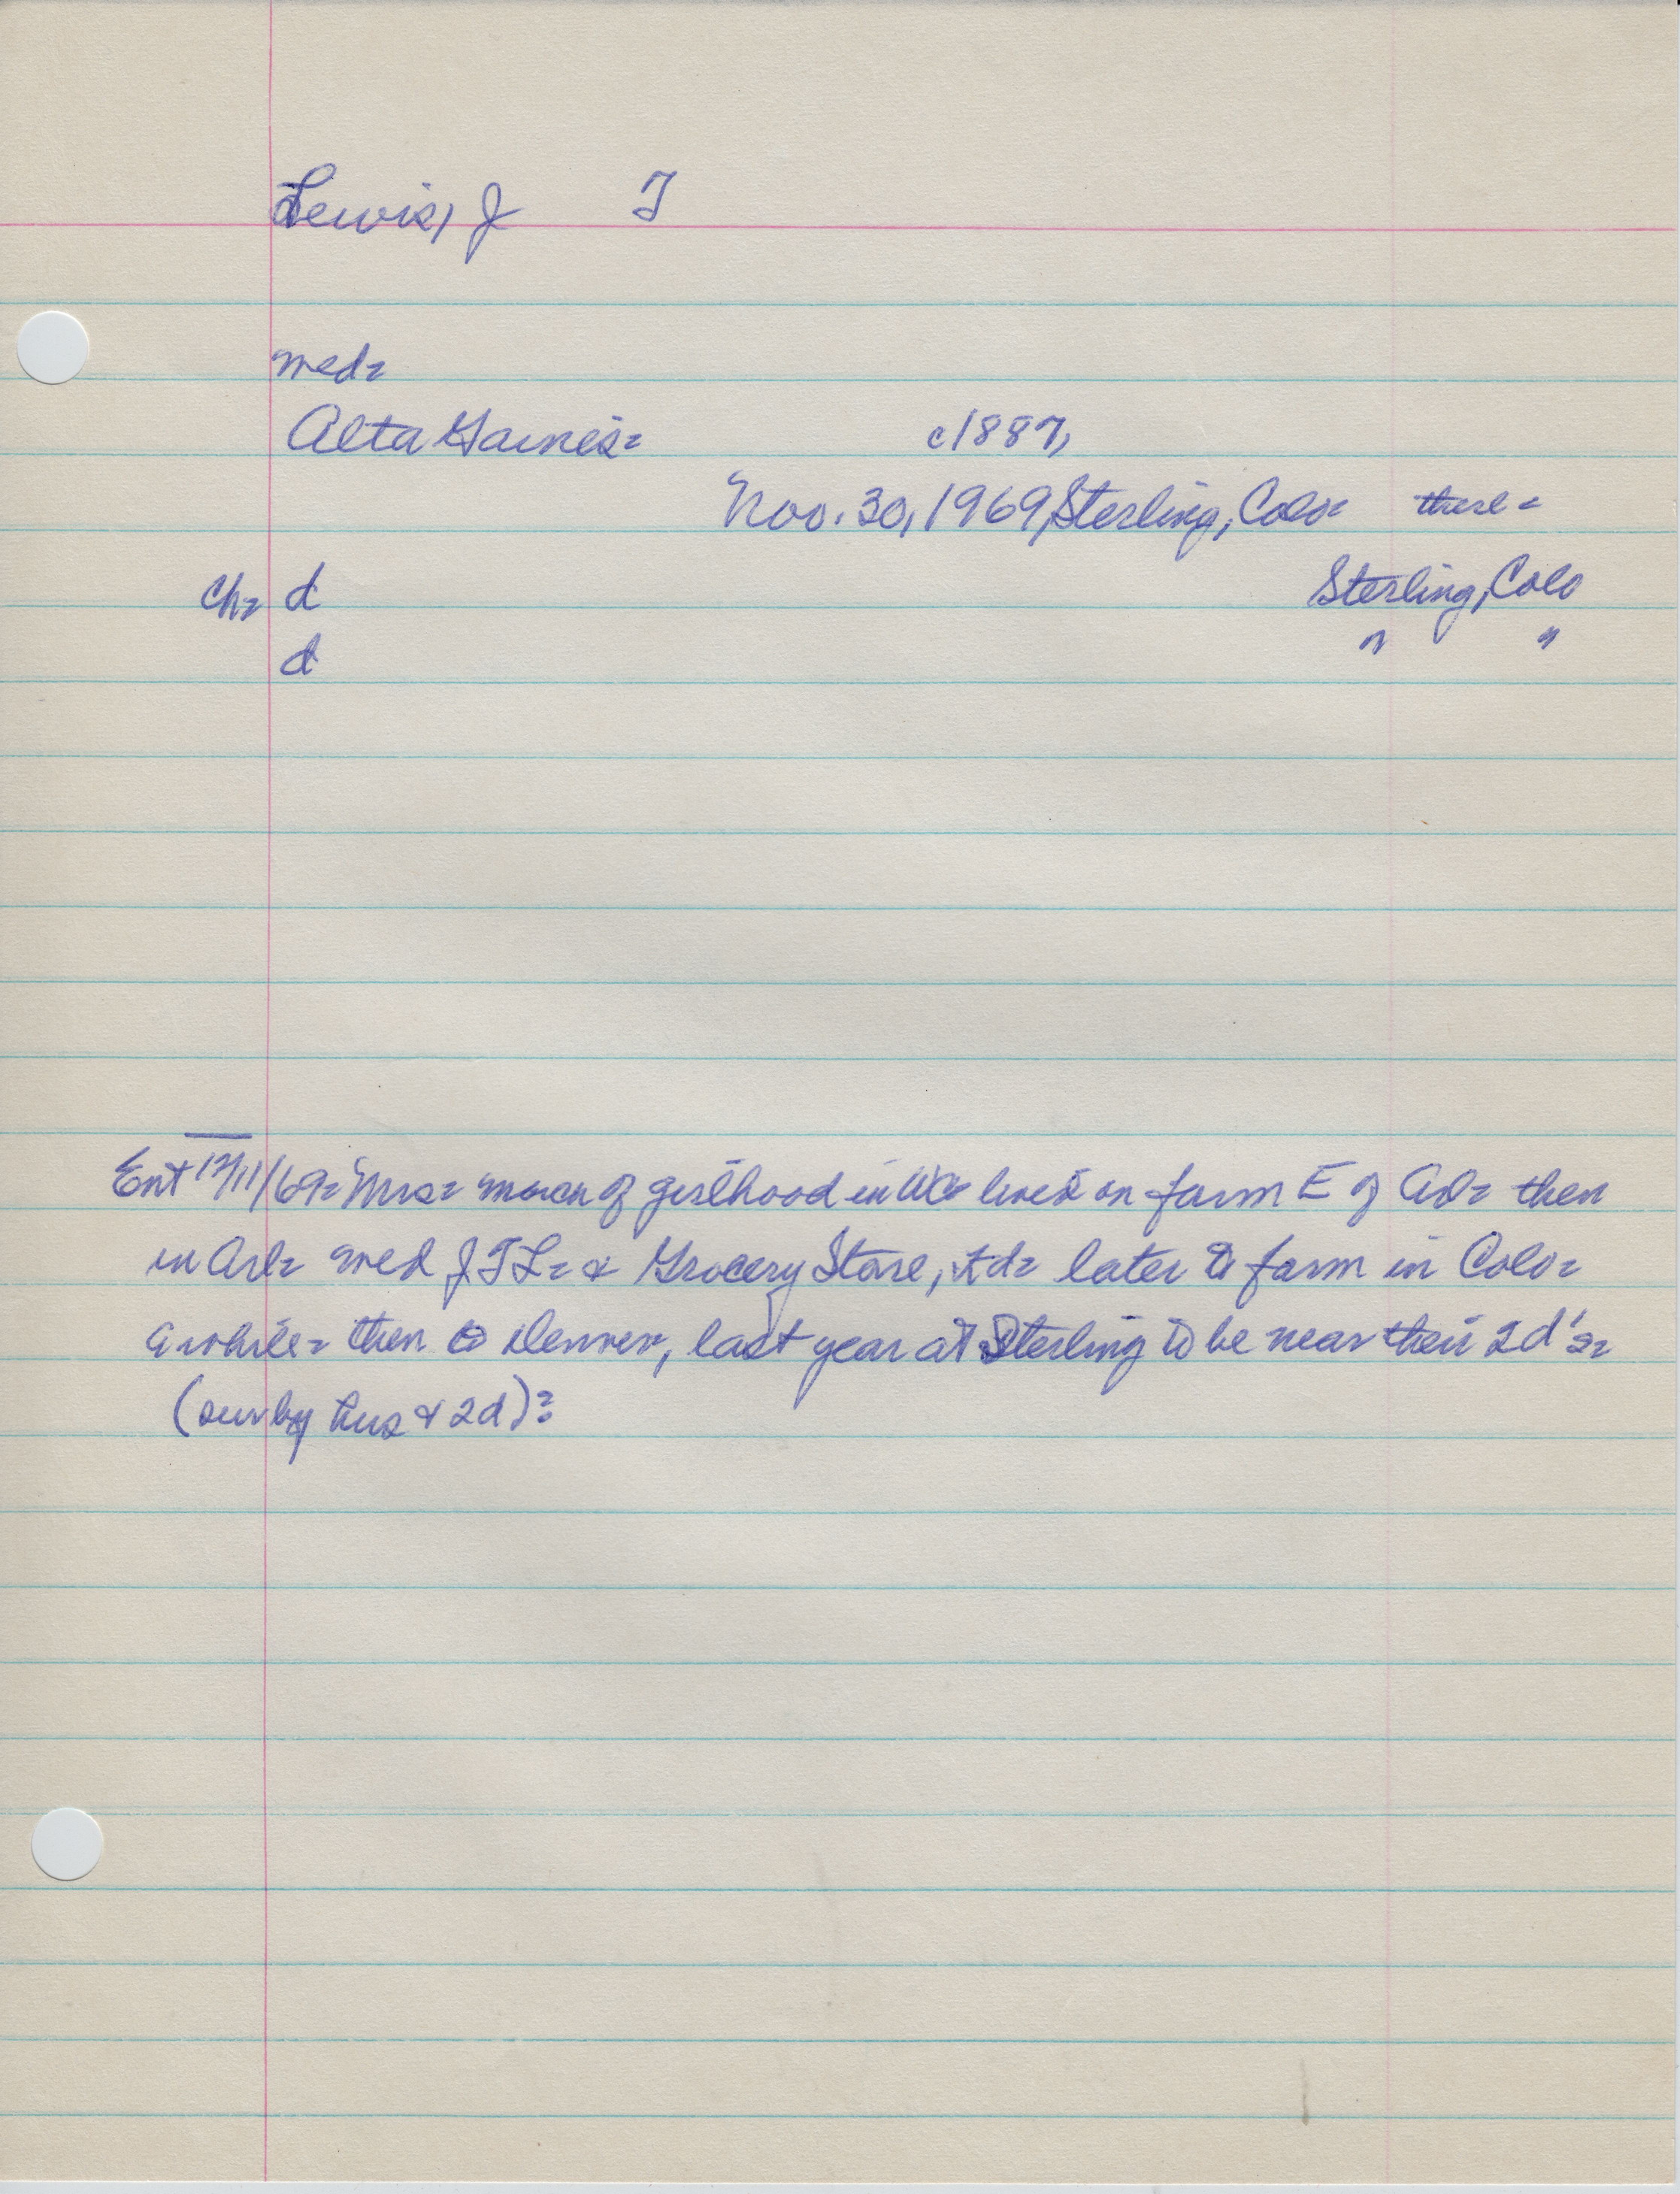 Lewis, J T
med=
Alta Gaines= c1887,
Nov. 30, 1969, Sterling, Colo= there=
Ch= d Sterling, Colo
d " "
Ent 12/11/69= Mrs= of girlhood in WC lived on farm E of then
in Arl= med J T L= & Grocery Store, later to farm in Colo=
awhile= then to Denver, last year at Sterling to be near their 2d's=
(sur by hus & 2d)=